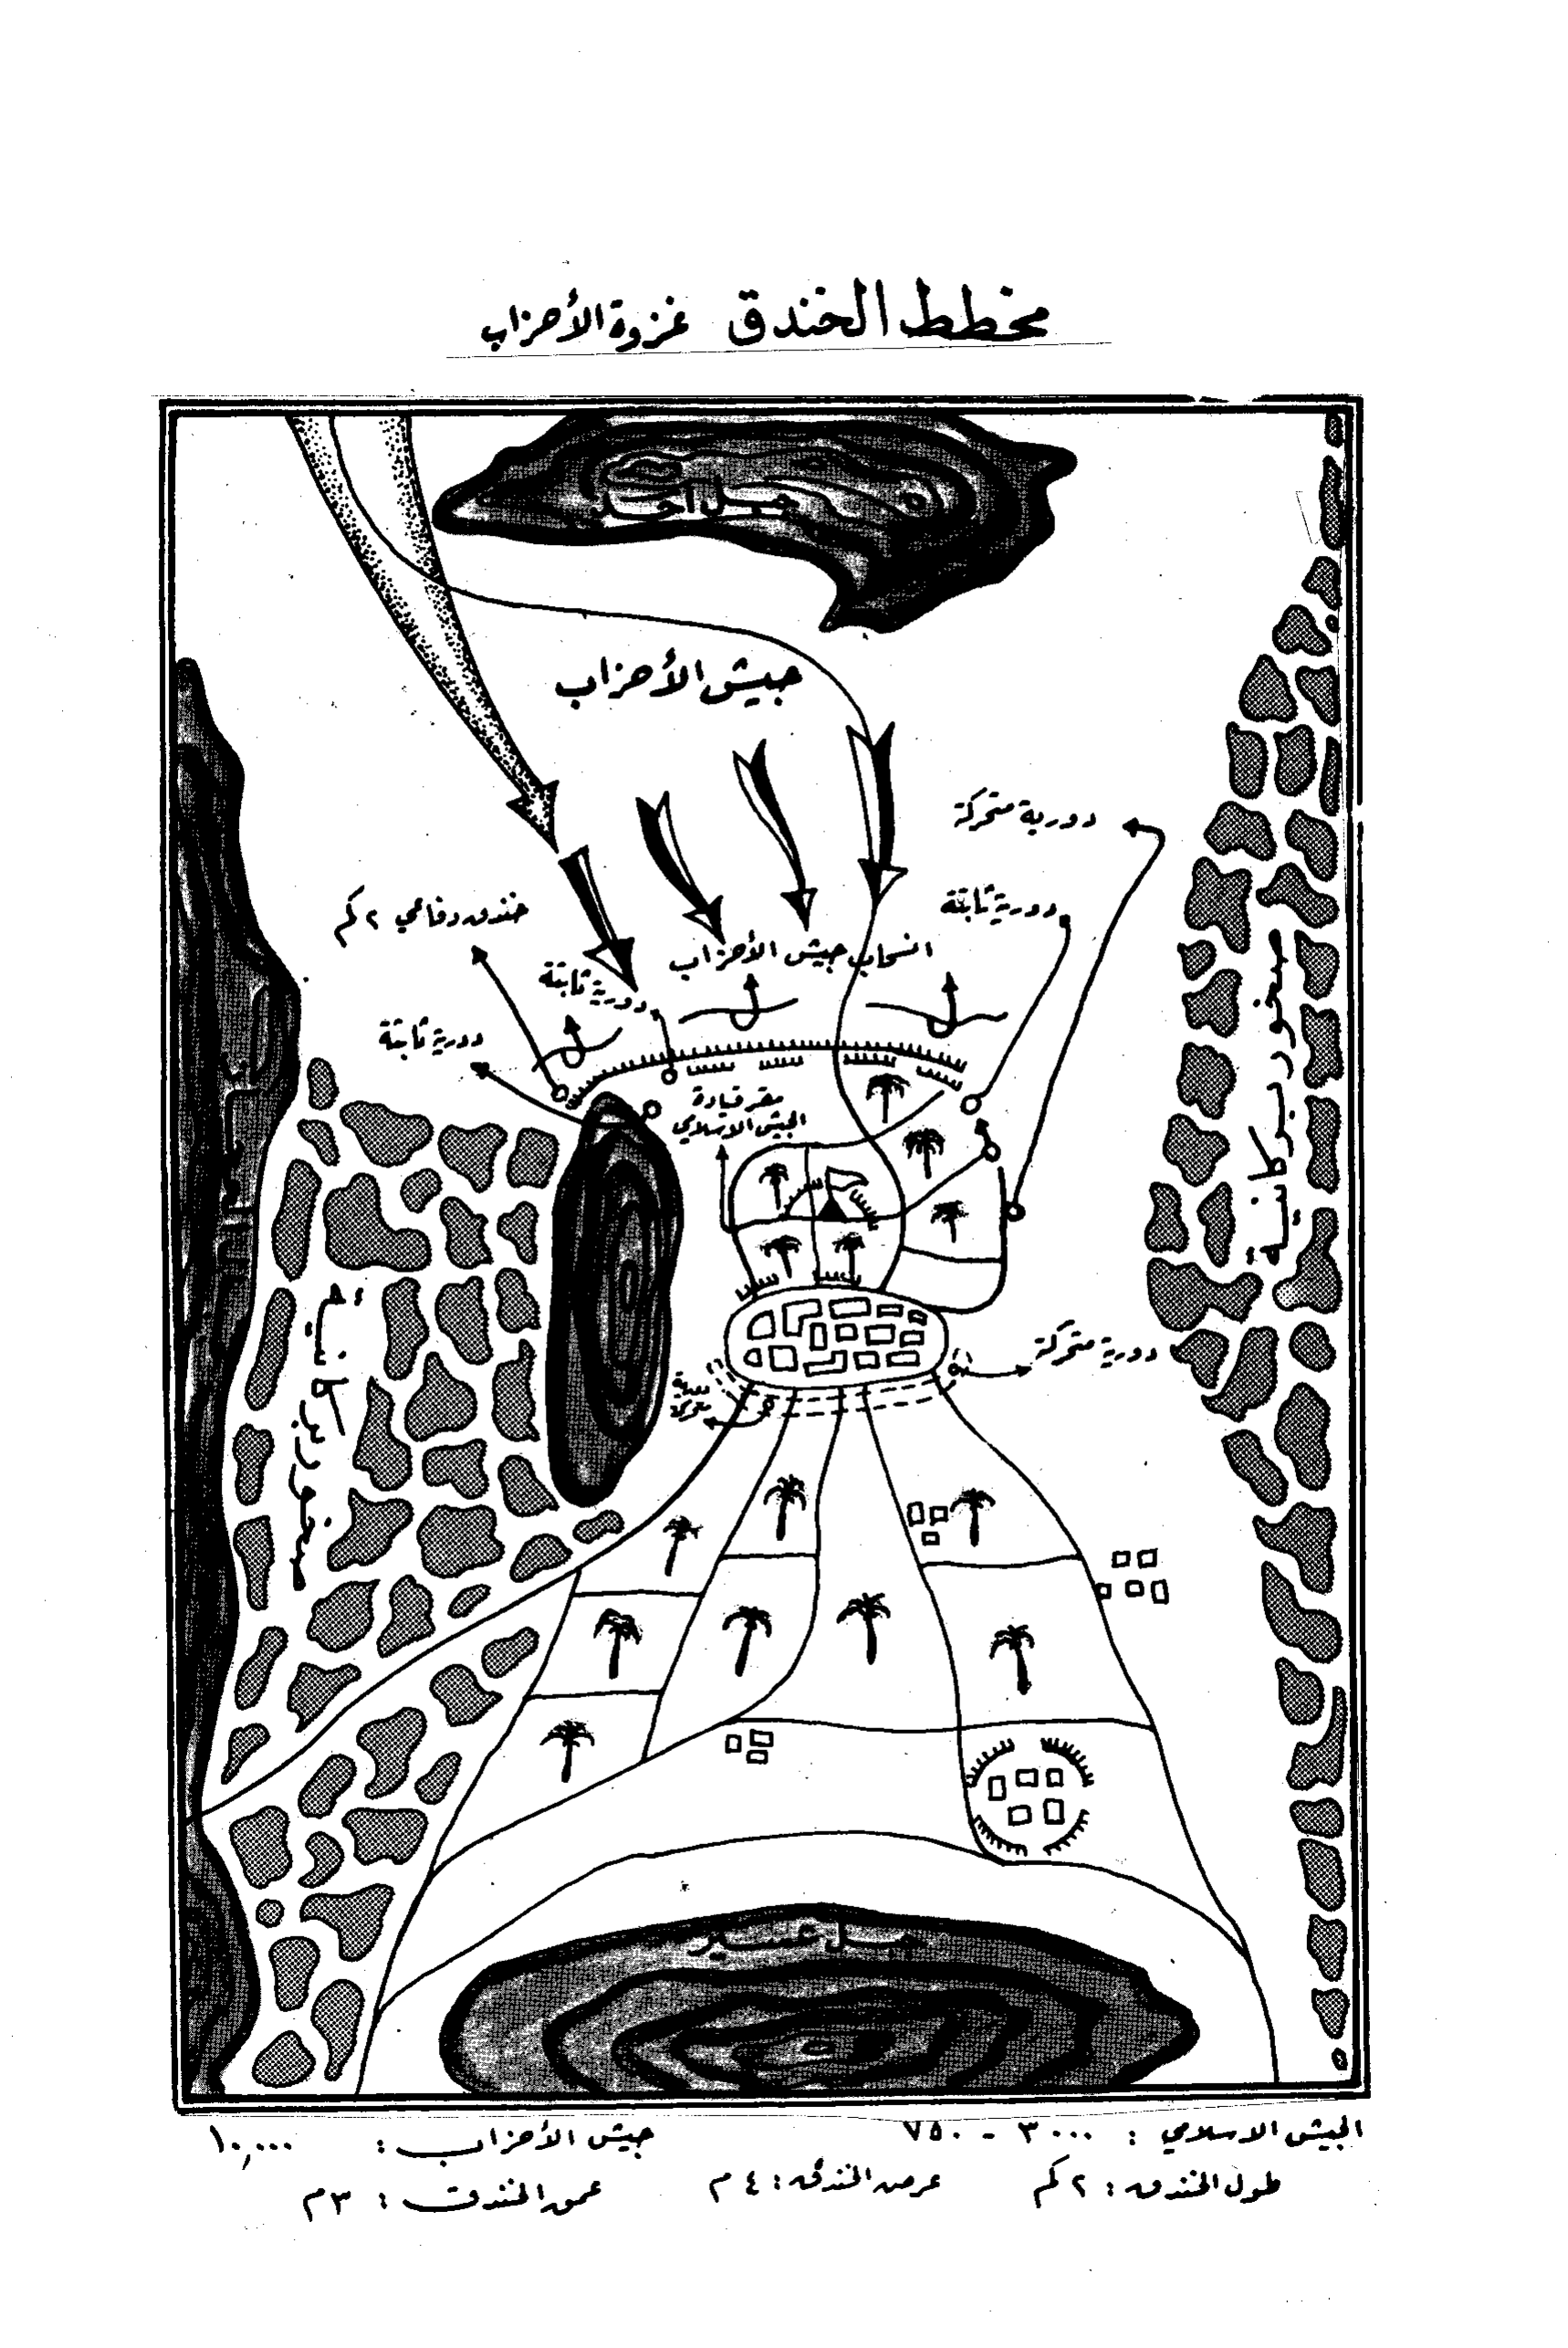 مخطط الخندق غزوة الأحزاب
جبل احد
جيش الأحزاب
دورية متحركة
دورية ثابتة
خندق دفاعي ٢ كم
انسحاب جيش الأحزاب
دورية ثابتة
دورية ثابتة
مقر قيادة
الجيش الاسلامي
صخور بركانية
صخور بركانية
دورية متحركة
دورية
متحركة
جبل عسير
الجيش الاسلامي : ٣٠٠٠ - ٧٥٠
جيش الأحزاب : ١٠,٠٠٠
طول الخندق : ٢ كم
عرض الخندق : ٤ م
عمق الخندق : ٣ م